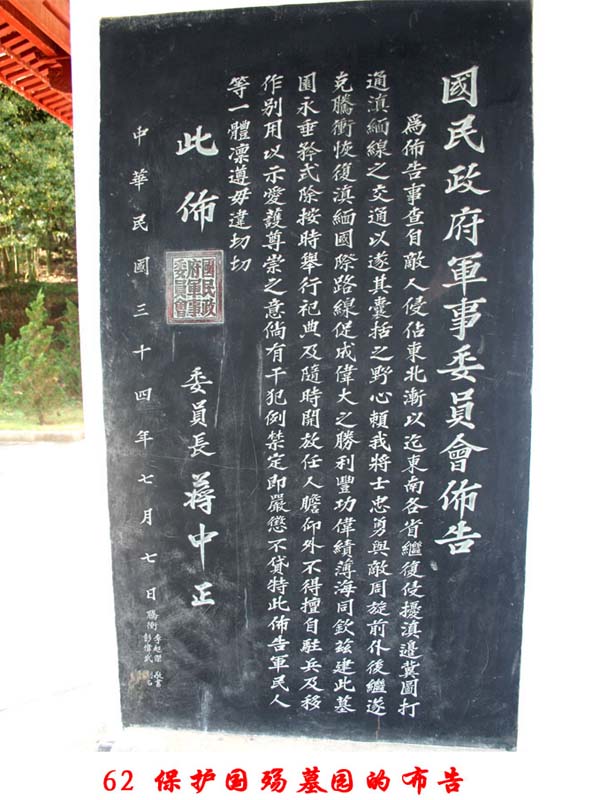 國民政府軍事委員會佈告
為佈告事查自敵人侵佔東北漸以迄東南各省繼復侵擾滇邊冀圖打
通滇緬線之交通以遂其囊括之野心賴我將士忠勇與敵周旋前仆後繼遂
克騰衝恢復滇緬國際路線促成偉大之勝利豐功偉績薄海同欽茲建此墓
園永垂矜式除按時舉行祀典及隨時開放任人瞻仰外不得擅自駐兵及移
作別用以示愛護尊崇之意倘有干犯例禁定即嚴懲不貸特此佈告軍民人
等一體凛遵毋違切切
此佈
國民政
府軍事
委員會
委員長 蔣中正
中華民國三十四年七月七日
騰衝 李起傑 敬書
彭偉武
62 保护国殇墓园的布告